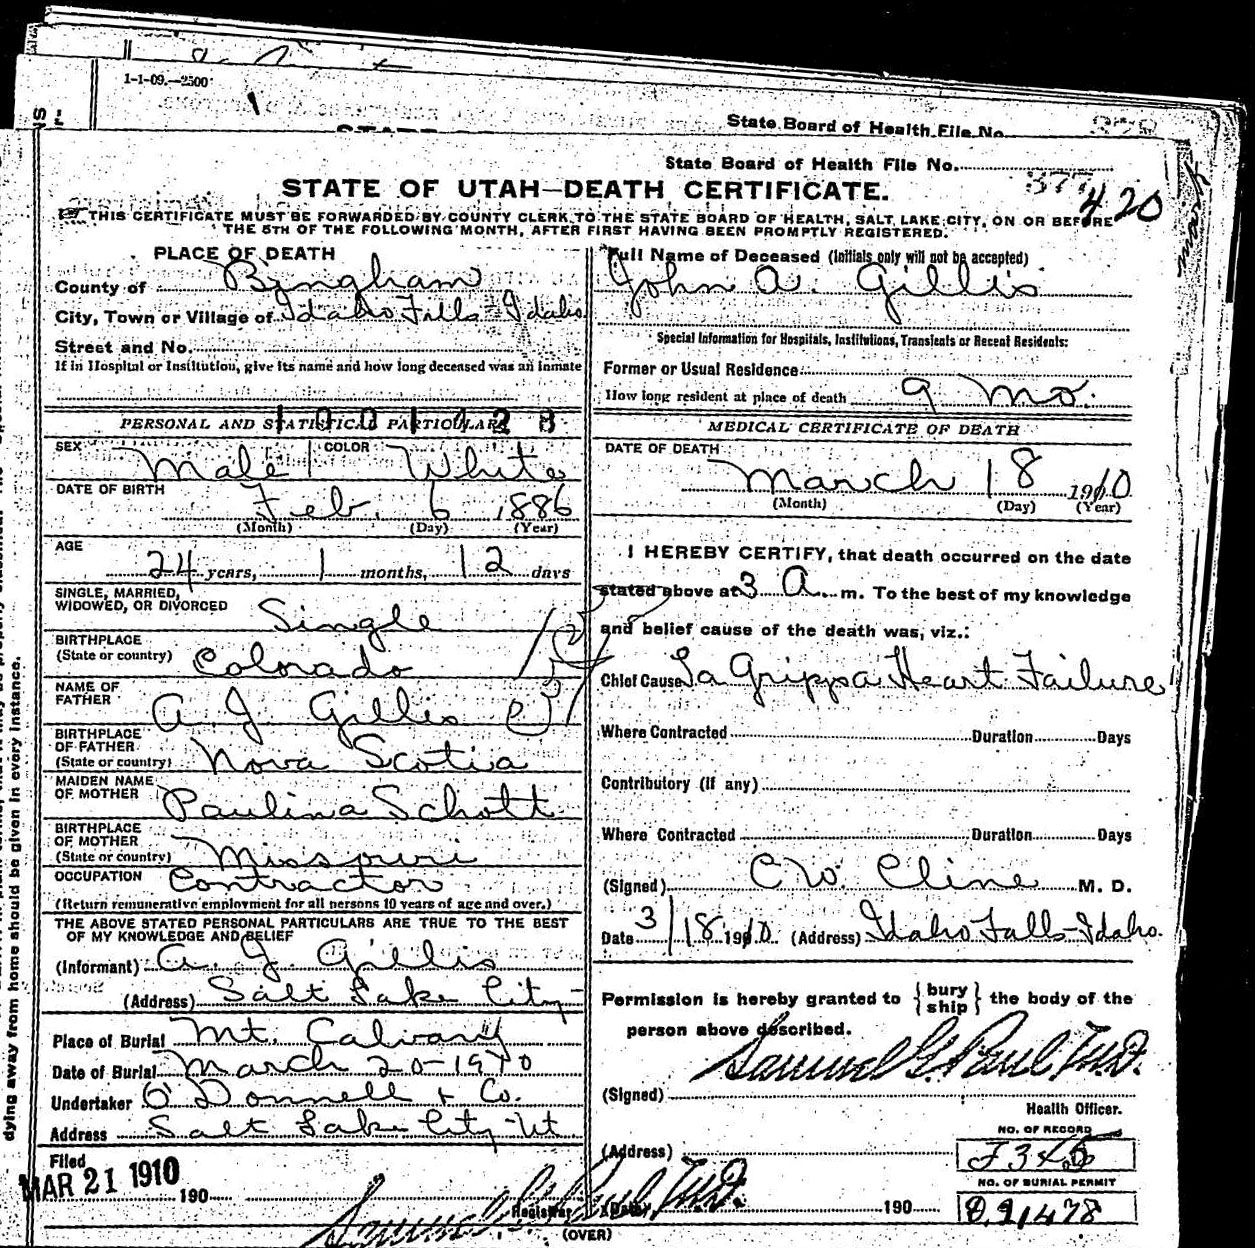 1-1-09.—2500
State Board of Health File No.
State Board of Health File No. 377
420
STATE OF UTAH—DEATH CERTIFICATE.
THIS CERTIFICATE MUST BE FORWARDED BY COUNTY CLERK TO THE STATE BOARD OF HEALTH, SALT LAKE CITY, ON OR BEFORE
THE 5TH OF THE FOLLOWING MONTH, AFTER FIRST HAVING BEEN PROMPTLY REGISTERED.
PLACE OF DEATH
County of Bingham
City, Town or Village of Idaho Falls - Idaho
Street and No.
If in Hospital or Institution, give its name and how long deceased was an inmate
PERSONAL AND STATISTICAL PARTICULARS
SEX Male COLOR White
DATE OF BIRTH Feb. 6 1886
(Month) (Day) (Year)
AGE
24 years, 1 months, 12 days
SINGLE, MARRIED,
WIDOWED, OR DIVORCED Single
BIRTHPLACE
(State or country) Colorado
NAME OF
FATHER A. J. Gillis
BIRTHPLACE
OF FATHER
(State or country) Nova Scotia
MAIDEN NAME
OF MOTHER Paulina Schott
BIRTHPLACE
OF MOTHER
(State or country) Missouri
OCCUPATION Contractor
(Return remunerative employment for all persons 10 years of age and over.)
THE ABOVE STATED PERSONAL PARTICULARS ARE TRUE TO THE BEST
OF MY KNOWLEDGE AND BELIEF
(Informant) A. J. Gillis
(Address) Salt Lake City
Place of Burial Mt. Calvary
Date of Burial March 20-1910
Undertaker O'Donnell & Co.
Address Salt Lake City Ut
Filed
MAR 21 1910 190
Full Name of Deceased (Initials only will not be accepted)
John A. Gillis
Special Information for Hospitals, Institutions, Transients or Recent Residents:
Former or Usual Residence
How long resident at place of death 9 Mo.
MEDICAL CERTIFICATE OF DEATH
DATE OF DEATH
March 18 1910
(Month) (Day) (Year)
I HEREBY CERTIFY, that death occurred on the date
stated above at 3 A. m. To the best of my knowledge
and belief cause of the death was, viz.:
Chief Cause La Grippa Heart Failure
Where Contracted Duration Days
Contributory (if any)
Where Contracted Duration Days
(Signed) C W. Cline M. D.
Date 3/18 1910 (Address) Idaho Falls - Idaho
Permission is hereby granted to {bury ship} the body of the
person above described.
Samuel G. Paul M.D.
(Signed)
Health Officer.
NO. OF RECORD
(Address)
NO. OF BURIAL PERMIT
Samuel G. Paul M.D.
Registrar (Date) 190
(OVER)
dying away from home should be given in every instance.